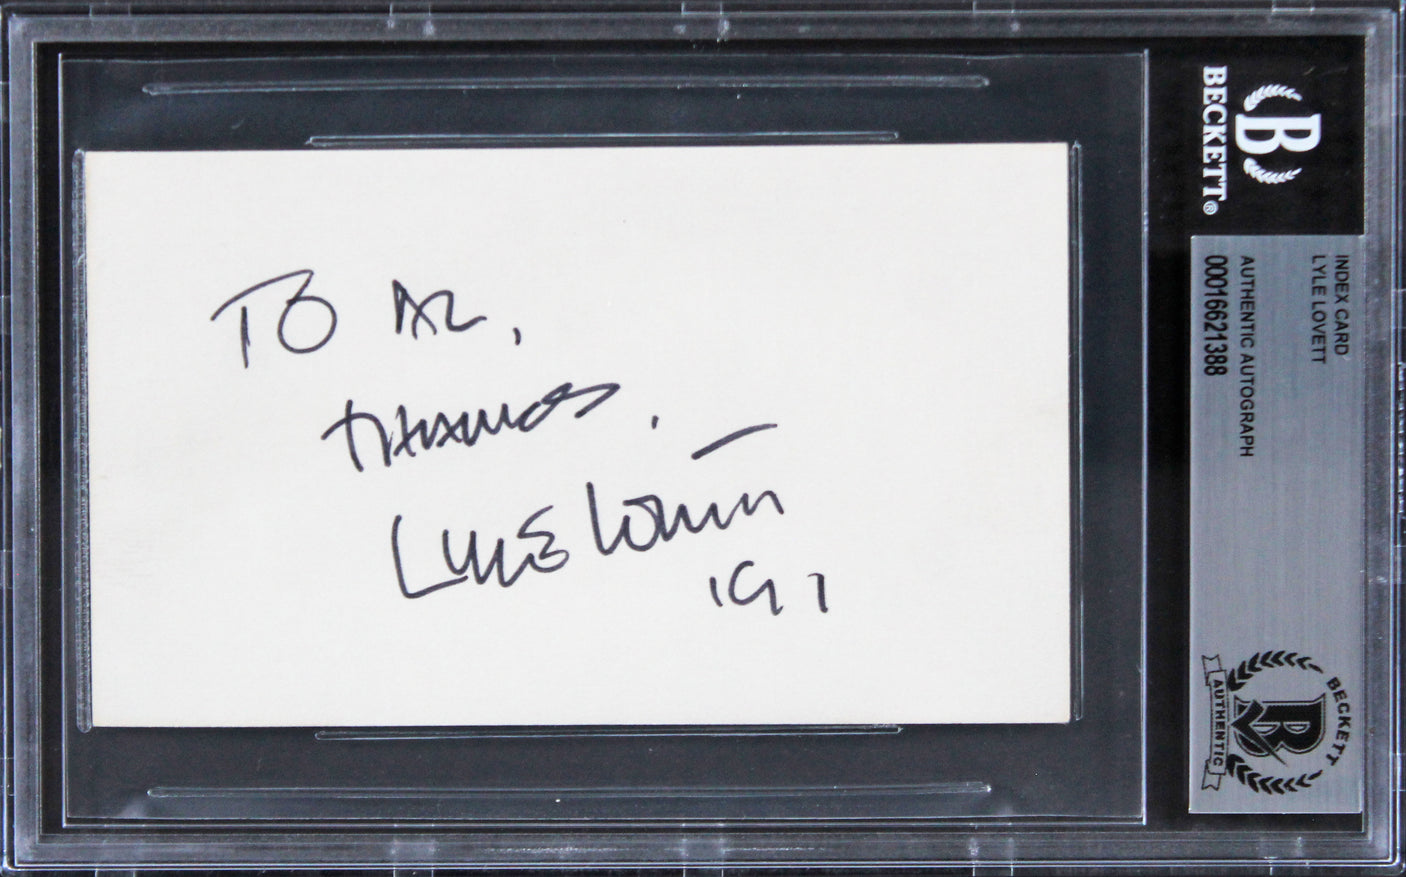 TO AL,
THANKS.
LYLE LOVETT
'91
BECKETT®
B
INDEX CARD
LYLE LOVETT
AUTHENTIC AUTOGRAPH
00016621388
BECKETT
B
AUTHENTIC